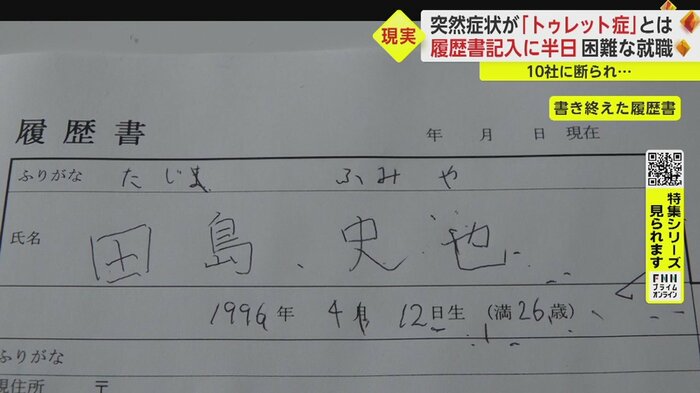 現実
突然症状が「トゥレット症」とは
履歴書記入に半日 困難な就職
10社に断られ…
書き終えた履歴書
特集シリーズ
見られます
FNN
プライム
オンライン
履歴書
年 月 日 現在
ふりがな たじま ふみや
氏名 田島 史也
1996年 4月 12日生 (満26歳)
ふりがな
現住所 〒